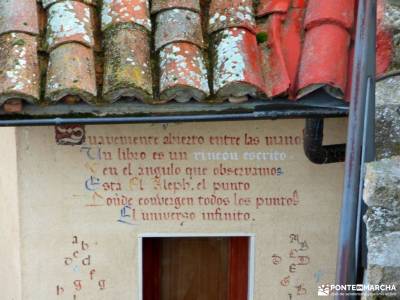 Suavemente abierto entre las mano
Un libro es un rincón escrito
Y en el angulo que observamos
Esta El Aleph, el punto
Donde convergen todos los puntos
El universo infinito.
a
b
c
d
e
d
f
g
a
b
A
B
D
E
PONTE EN MARCHA